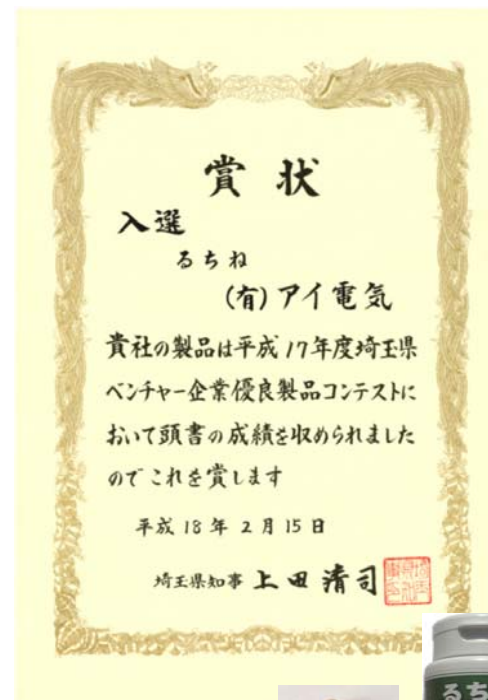 賞状
入選
るちね
(有)アイ電気
貴社の製品は平成17年度埼玉県
ベンチャー企業優良製品コンテストに
おいて頭書の成績を収められました
のでこれを賞します
平成18年2月15日
埼玉県知事 上田清司
るち